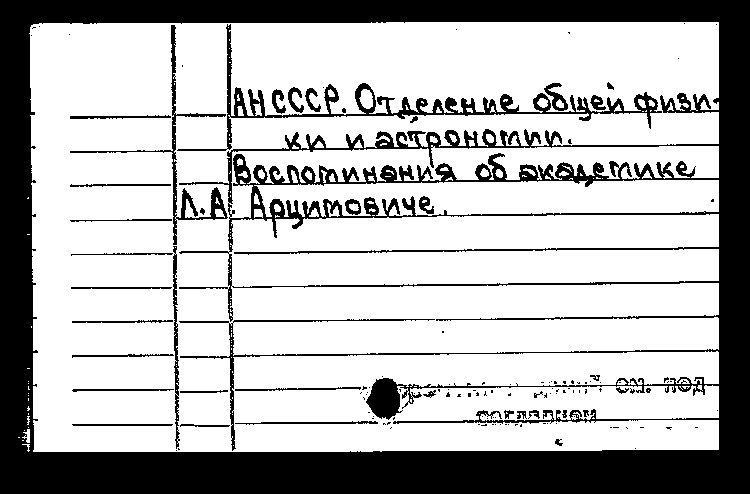 АН СССР. Отделение общей физи-
ки и астрономии.
Воспоминания об академике
Л.А. Арцимовиче.
см. под
заглавием